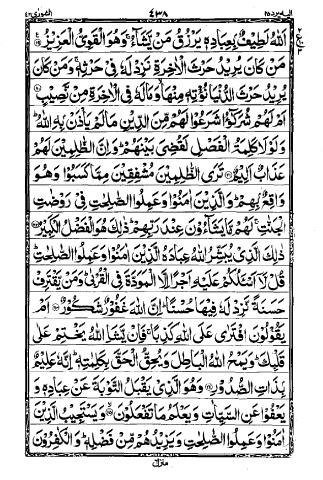 الشورى ٤٢ ٤٣٨ اليه يرد ٢٥
اَللّٰهُ لَطِيْفٌۢ بِعِبَادِهٖ يَرْزُقُ مَنْ يَّشَآءُ ۚ وَهُوَ الْقَوِيُّ الْعَزِيْزُ ۝
مَنْ كَانَ يُرِيْدُ حَرْثَ الْاٰخِرَةِ نَزِدْ لَهٗ فِيْ حَرْثِهٖ ۚ وَمَنْ كَانَ
يُرِيْدُ حَرْثَ الدُّنْيَا نُؤْتِهٖ مِنْهَا وَمَا لَهٗ فِي الْاٰخِرَةِ مِنْ نَّصِيْبٍ ۝
اَمْ لَهُمْ شُرَكٰٓؤُا شَرَعُوْا لَهُمْ مِّنَ الدِّيْنِ مَا لَمْ يَاْذَنْۢ بِهِ اللّٰهُ ۭ
وَلَوْلَا كَلِمَةُ الْفَصْلِ لَقُضِيَ بَيْنَهُمْ ۭ وَاِنَّ الظّٰلِمِيْنَ لَهُمْ
عَذَابٌ اَلِيْمٌ ۝ تَرَى الظّٰلِمِيْنَ مُشْفِقِيْنَ مِمَّا كَسَبُوْا وَهُوَ
وَاقِعٌۢ بِهِمْ ۭ وَالَّذِيْنَ اٰمَنُوْا وَعَمِلُوا الصّٰلِحٰتِ فِيْ رَوْضٰتِ
الْجَنّٰتِ ۚ لَهُمْ مَّا يَشَآءُوْنَ عِنْدَ رَبِّهِمْ ۭ ذٰلِكَ هُوَ الْفَضْلُ الْكَبِيْرُ ۝
ذٰلِكَ الَّذِيْ يُبَشِّرُ اللّٰهُ عِبَادَهُ الَّذِيْنَ اٰمَنُوْا وَعَمِلُوا الصّٰلِحٰتِ ۭ
قُلْ لَّآ اَسْـَٔلُكُمْ عَلَيْهِ اَجْرًا اِلَّا الْمَوَدَّةَ فِي الْقُرْبٰى ۭ وَمَنْ يَّقْتَرِفْ
حَسَنَةً نَّزِدْ لَهٗ فِيْهَا حُسْنًا ۭ اِنَّ اللّٰهَ غَفُوْرٌ شَكُوْرٌ ۝ اَمْ
يَقُوْلُوْنَ افْتَرٰى عَلَى اللّٰهِ كَذِبًا ۚ فَاِنْ يَّشَاِ اللّٰهُ يَخْتِمْ عَلٰى
قَلْبِكَ ۭ وَيَمْحُ اللّٰهُ الْبَاطِلَ وَيُحِقُّ الْحَقَّ بِكَلِمٰتِهٖ ۭ اِنَّهٗ عَلِيْمٌۢ
بِذَاتِ الصُّدُوْرِ ۝ وَهُوَ الَّذِيْ يَقْبَلُ التَّوْبَةَ عَنْ عِبَادِهٖ وَ
يَعْفُوْا عَنِ السَّيِّاٰتِ وَيَعْلَمُ مَا تَفْعَلُوْنَ ۝ وَيَسْتَجِيْبُ الَّذِيْنَ
اٰمَنُوْا وَعَمِلُوا الصّٰلِحٰتِ وَيَزِيْدُهُمْ مِّنْ فَضْلِهٖ ۭ وَالْكٰفِرُوْنَ
منزل